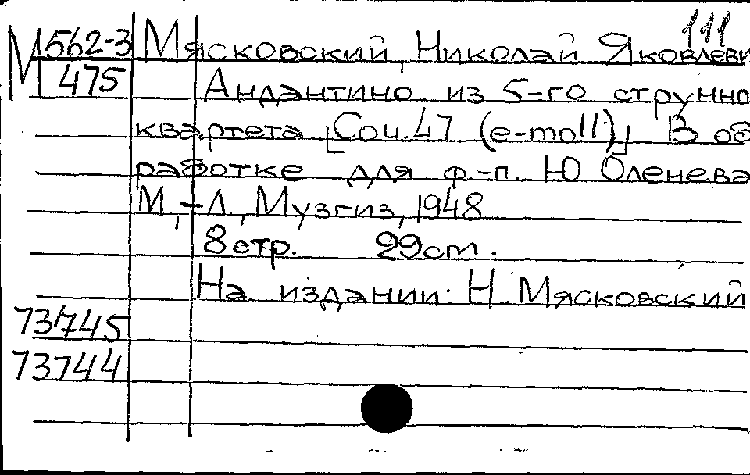 111
М 562-3 Мясковский, Николай Яковлеви
475 Андантино из 5-го струнно
квартета [Соч.47 (e-moll)] В об
работке для ф.-п. Ю Оленева
М.,-Л., Музгиз, 1948
8стр. 29ст.
На издании: Н. Мясковский
73745
73744